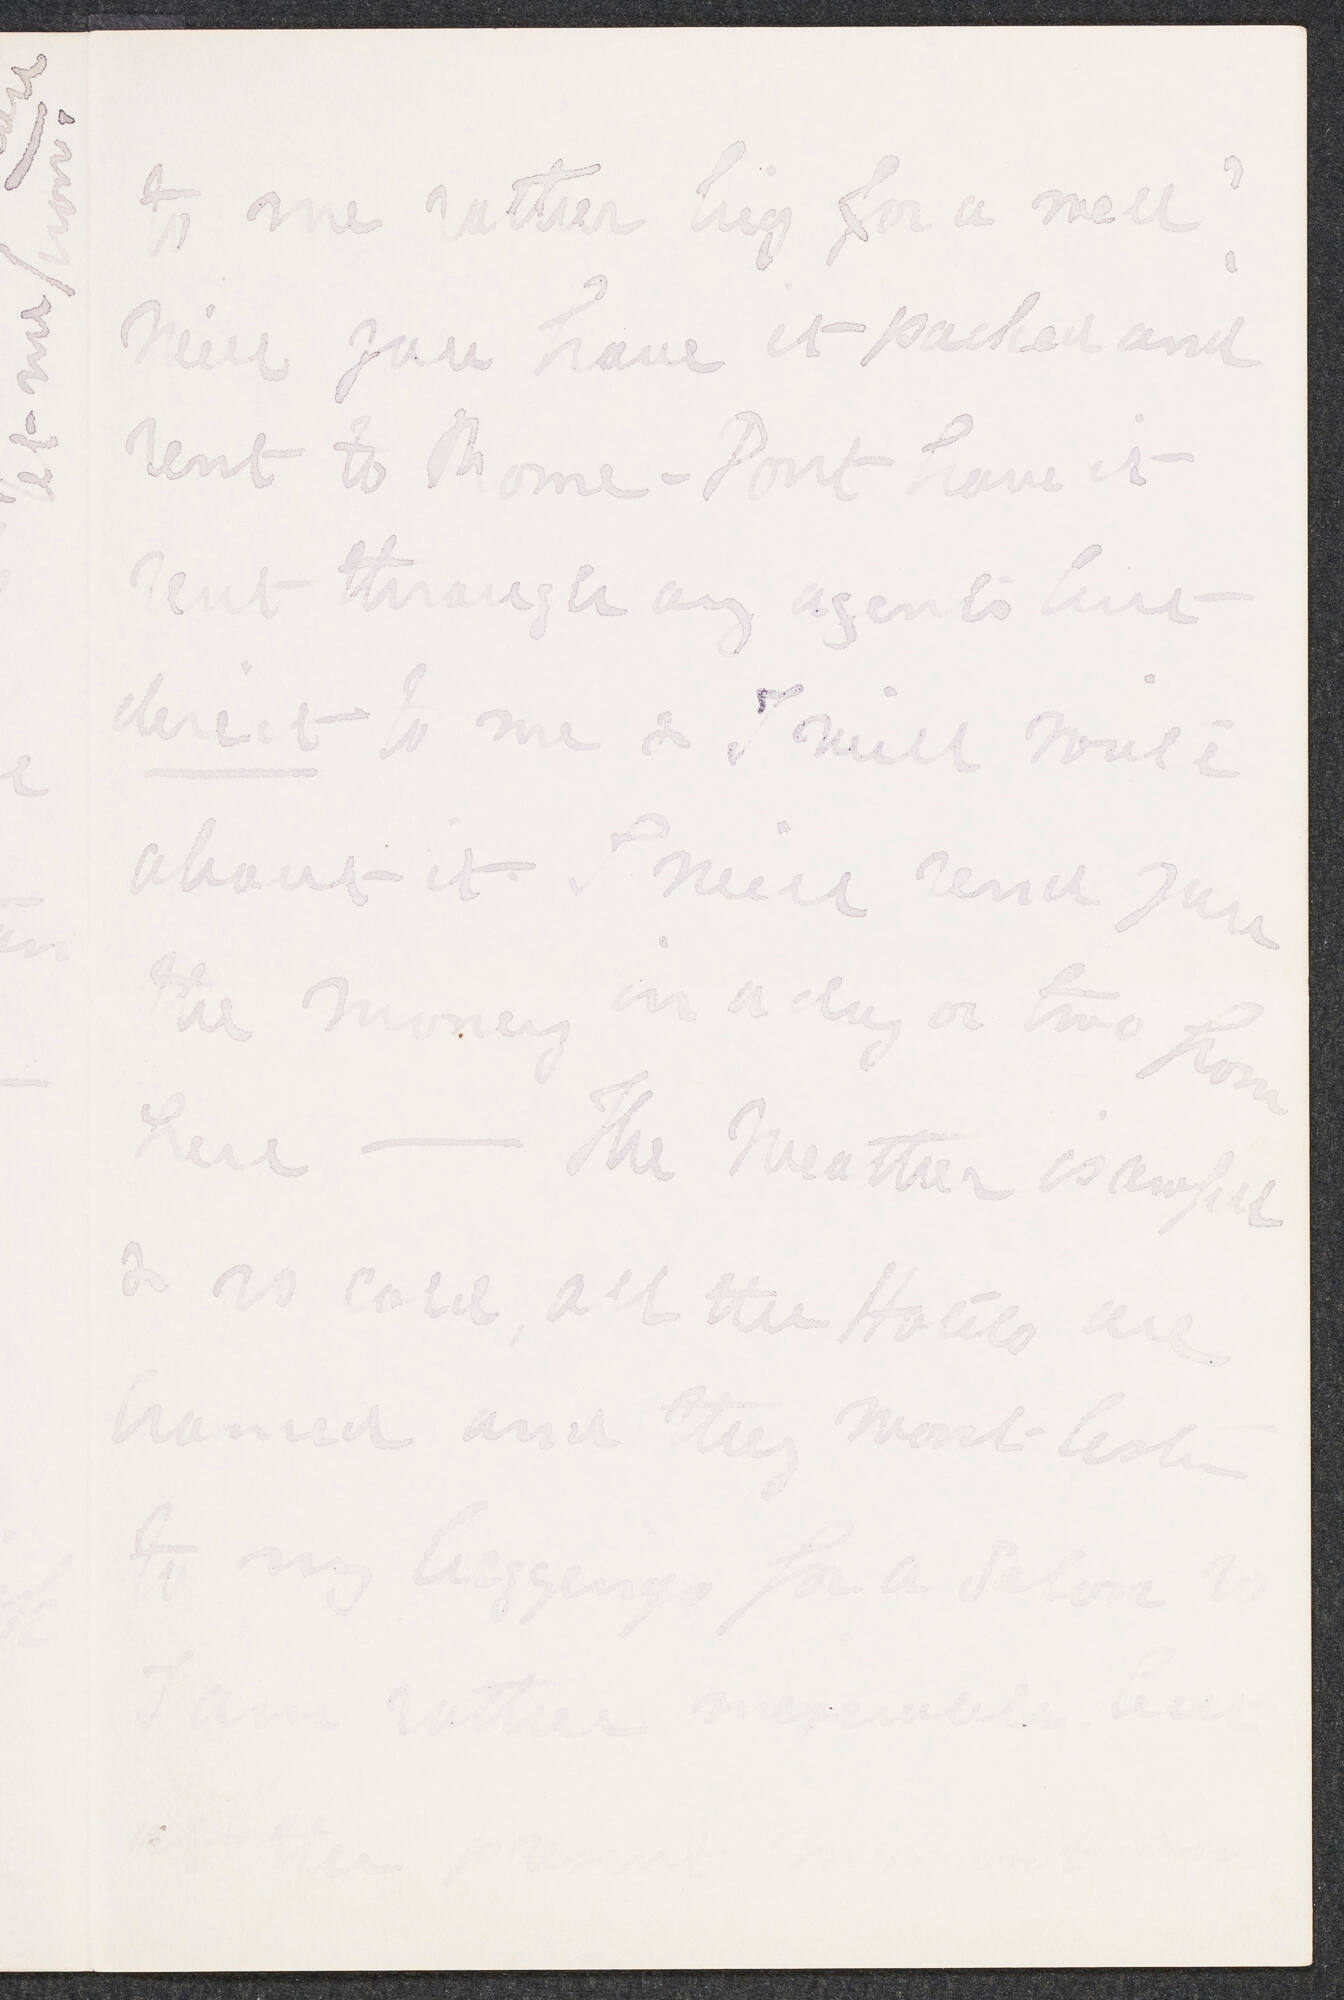 to me rather big for a well?
Will you have it packed and
sent to Rome - Dont have it
sent through any agents but
direct to me & I will write
about it. I will send you
the money in a day or two from
here — The Weather is awful
& so cold, all the Hotels are
crammed and they wont listen
to my beggings for a Salon so
I am rather miserable but
at the present moment